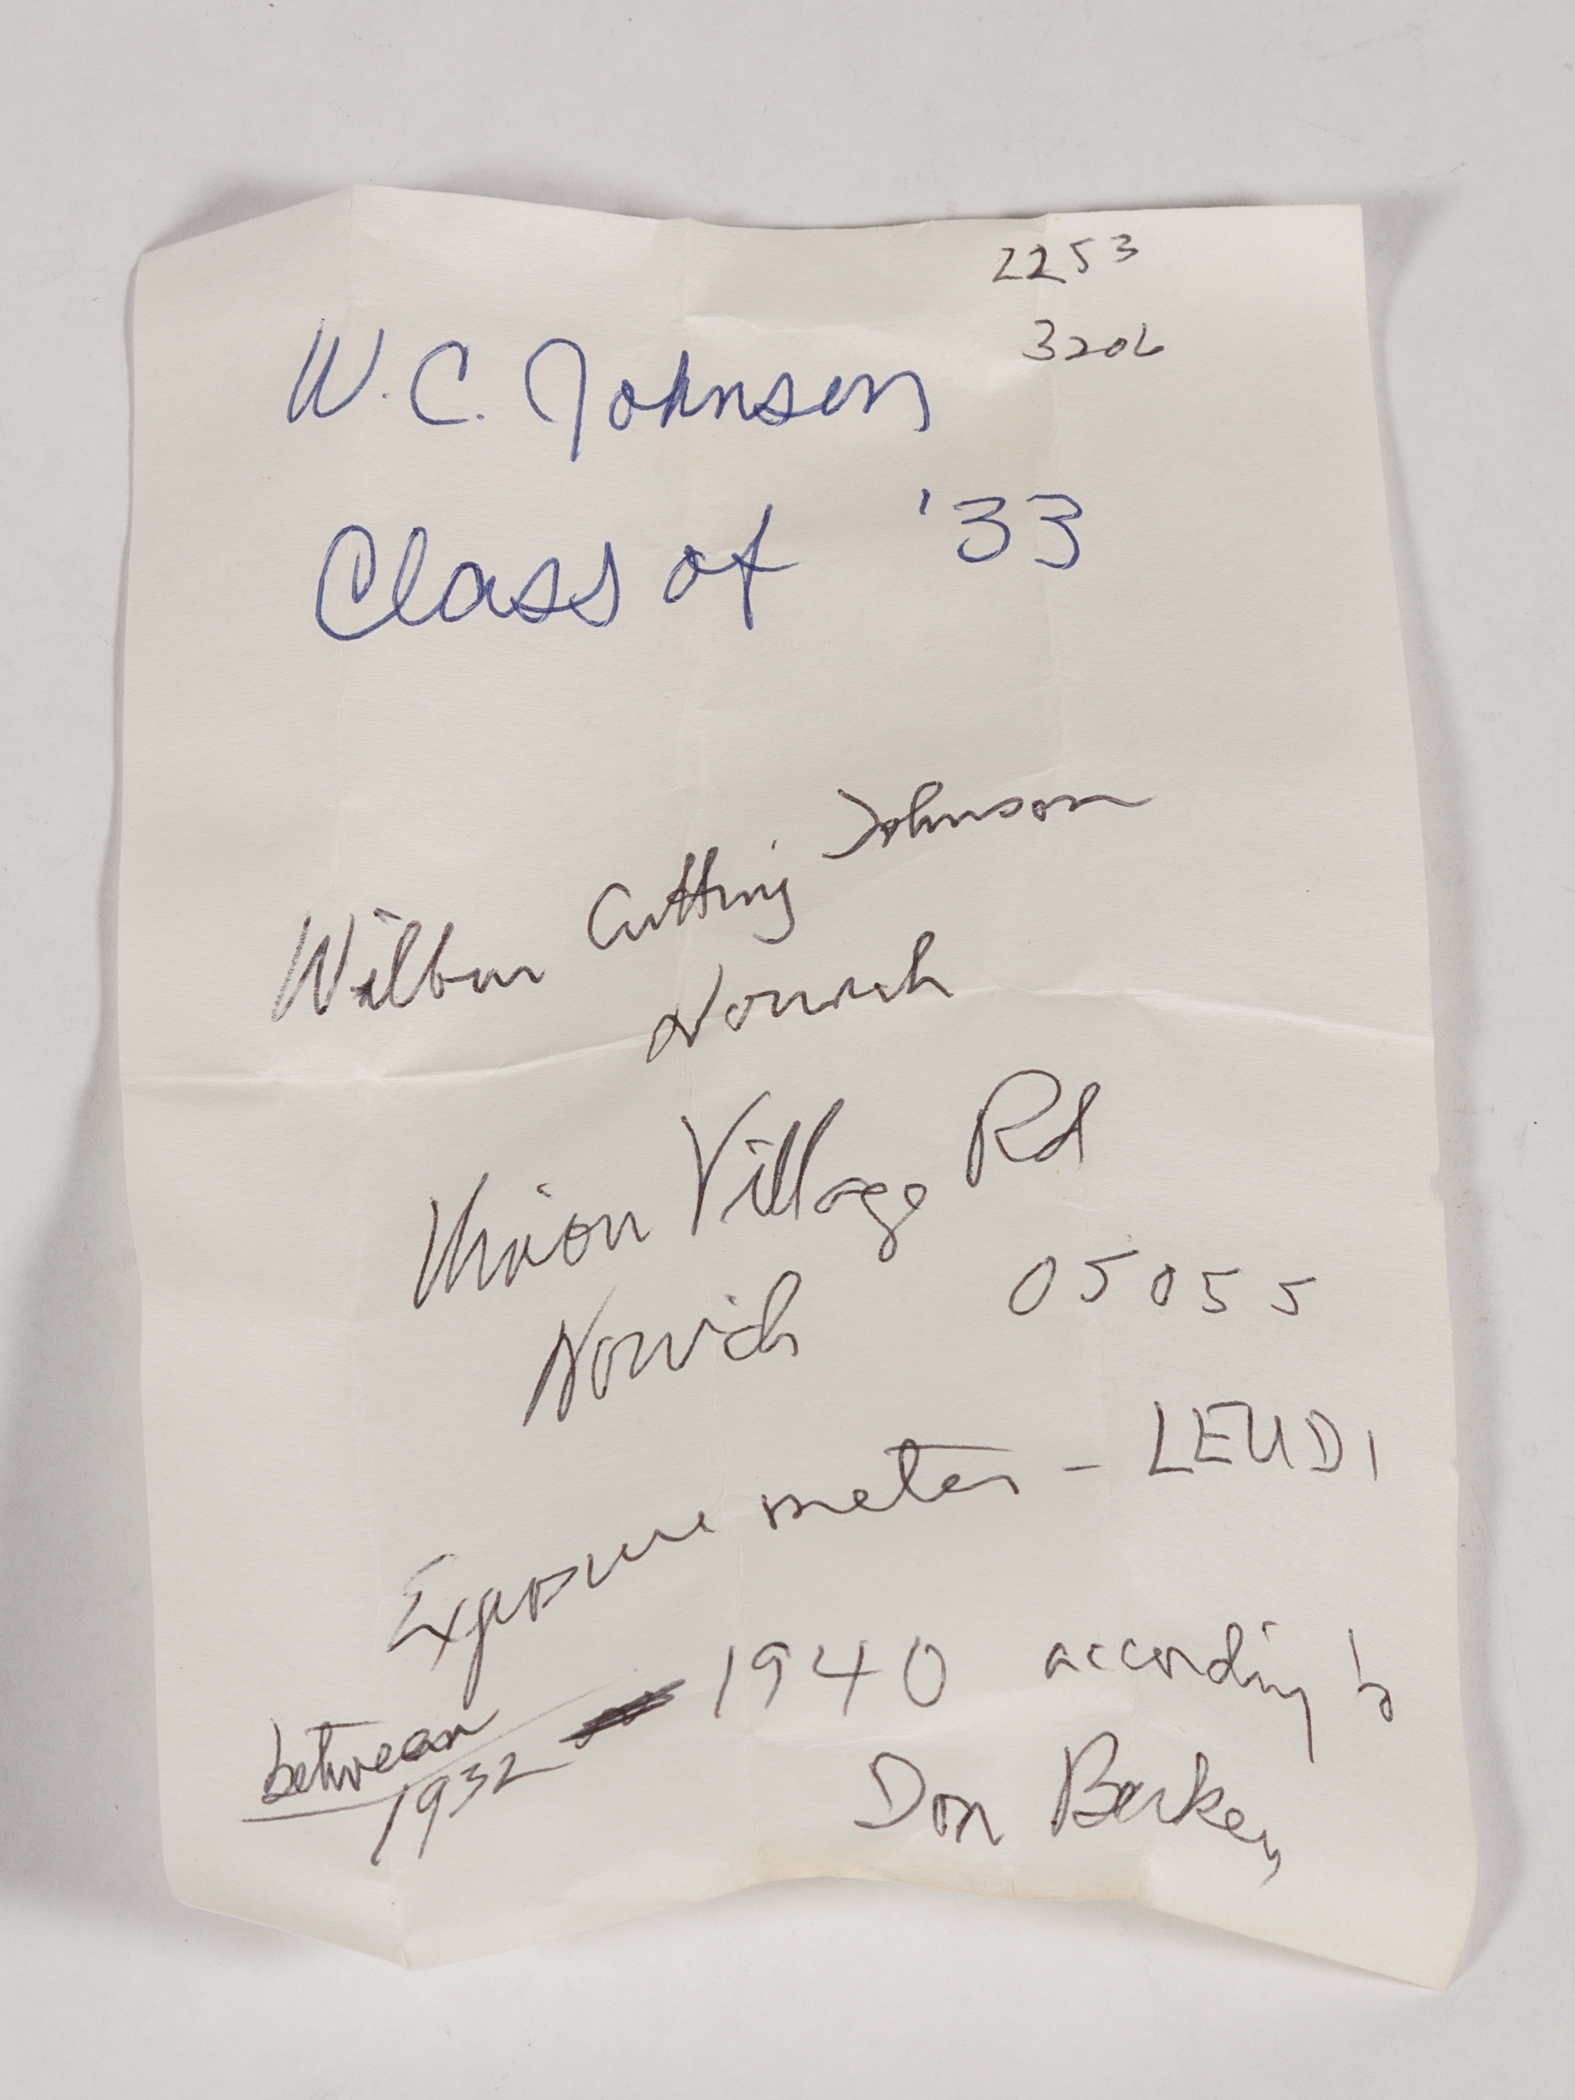 2253
3206
W. C. Johnson
Class of '33
Wilbur Cutting Johnson
Norwich
Union Village Rd
Norwich 05055
Exposure meter - LEUDI
between 1932 1940 according to
Don Berkey